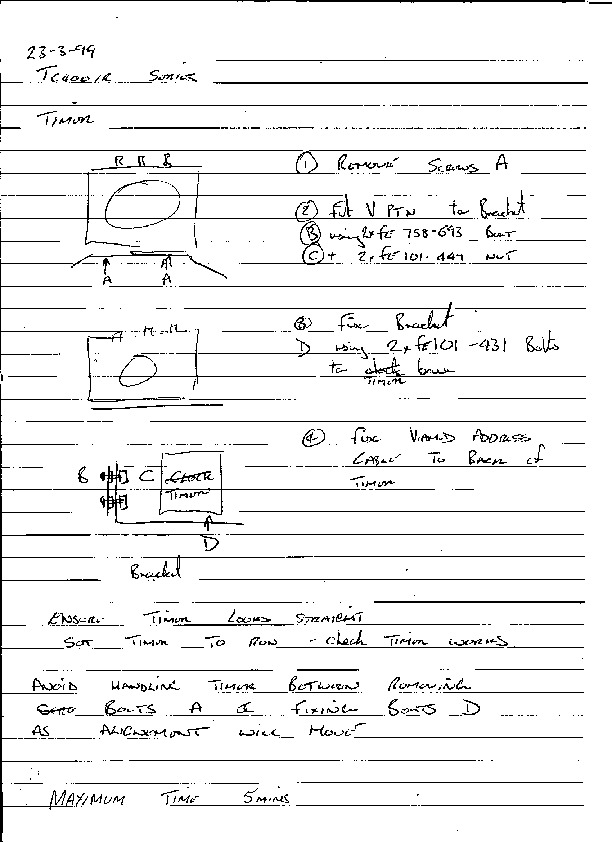 23-3-99
TIMER
① REMOVE SCREWS A
② Fit V PTN to Bracket
Ⓑ using 2x FE 758-693 BOLT
Ⓒ + 2x FE 101-447 NUT
A A
③ Fix Bracket
D using 2x FE101-431 Bolts
to base
TIMER
④ FIX ADDRESS
CABLE TO BACK of
TIMER
B C CLOCK
TIMER
D
Bracket
ENSURE TIMER LOOKS STRAIGHT
SET TIMER TO RUN - check TIMER WORKS
AVOID HANDLING TIMER BETWEEN REMOVING
BOLTS A & FIXING BOLTS D
AS ALIGNMENT WILL MOVE
MAXIMUM TIME 5 MINS